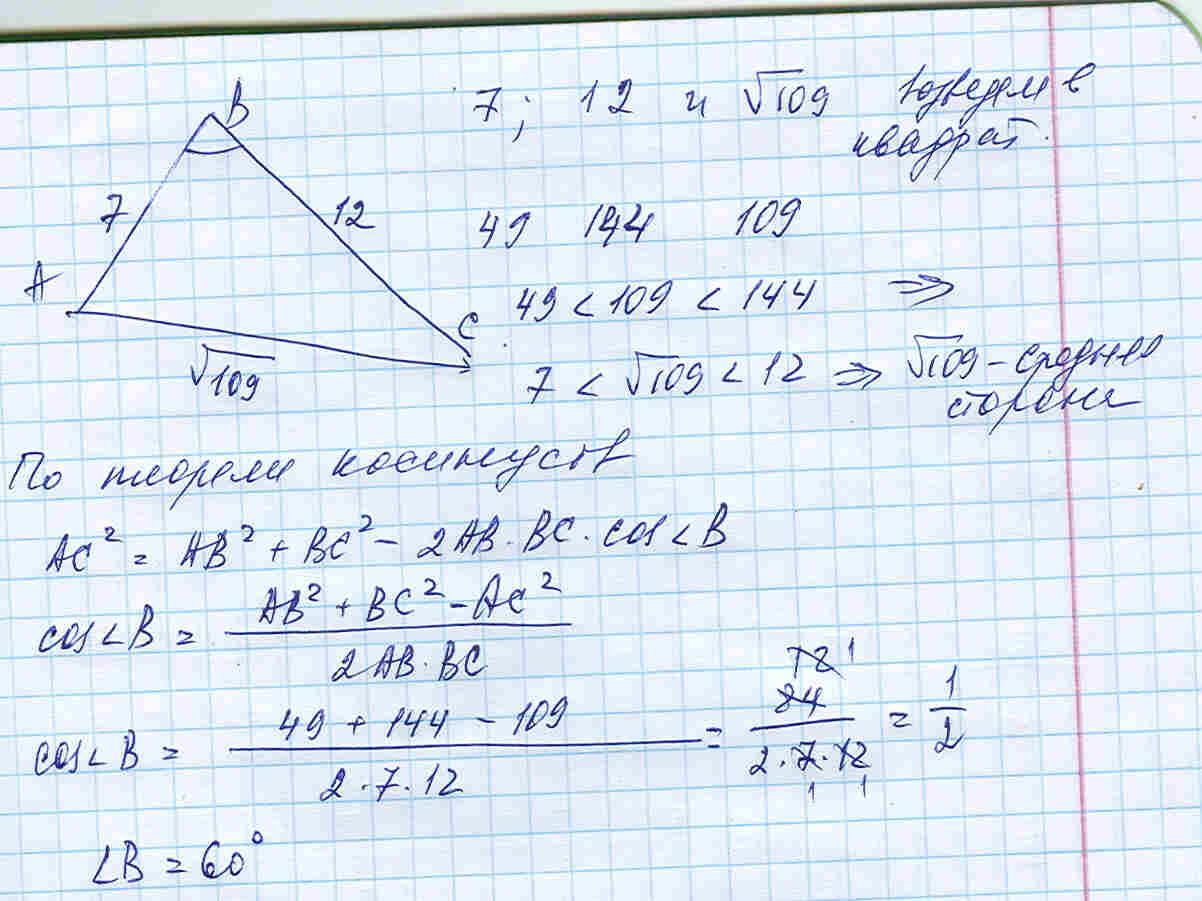 B
7
12
A
C
√109
7; 12 и √109 Возведем в
квадрат.
49 144 109
49 < 109 < 144 ⇒
7 < √109 < 12 ⇒ √109 - средняя
сторона
По теореме косинусов
AC² = AB² + BC² - 2AB·BC·cos∠B
cos∠B = (AB² + BC² - AC²) / (2AB·BC)
cos∠B = (49 + 144 - 109) / (2·7·12) = 84 / (2·7·12) = 1/2
12 1
1 1
∠B = 60°